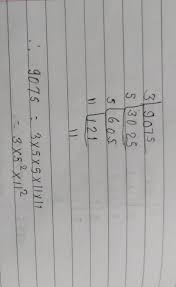 3 | 9075
5 | 3025
5 | 605
11 | 121
11
∴ 9075 = 3x5x5x11x11
= 3x5²x11²